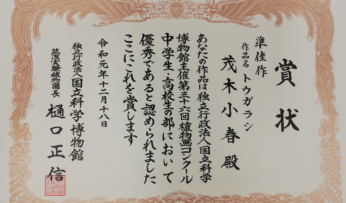 賞状
準佳作
作品名 トウガラシ
茂木小春 殿
あなたの作品は独立行政法人国立科学
博物館主催第三十六回植物画コンクール
中学生・高校生の部において
優秀であると認められました
ここにこれを賞します
令和元年十二月十八日
独立行政法人国立科学博物館
筑波実験植物園長
樋口正信